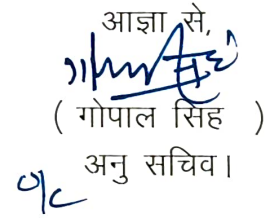 आज्ञा से,
( गोपाल सिंह )
अनु सचिव।
o/c